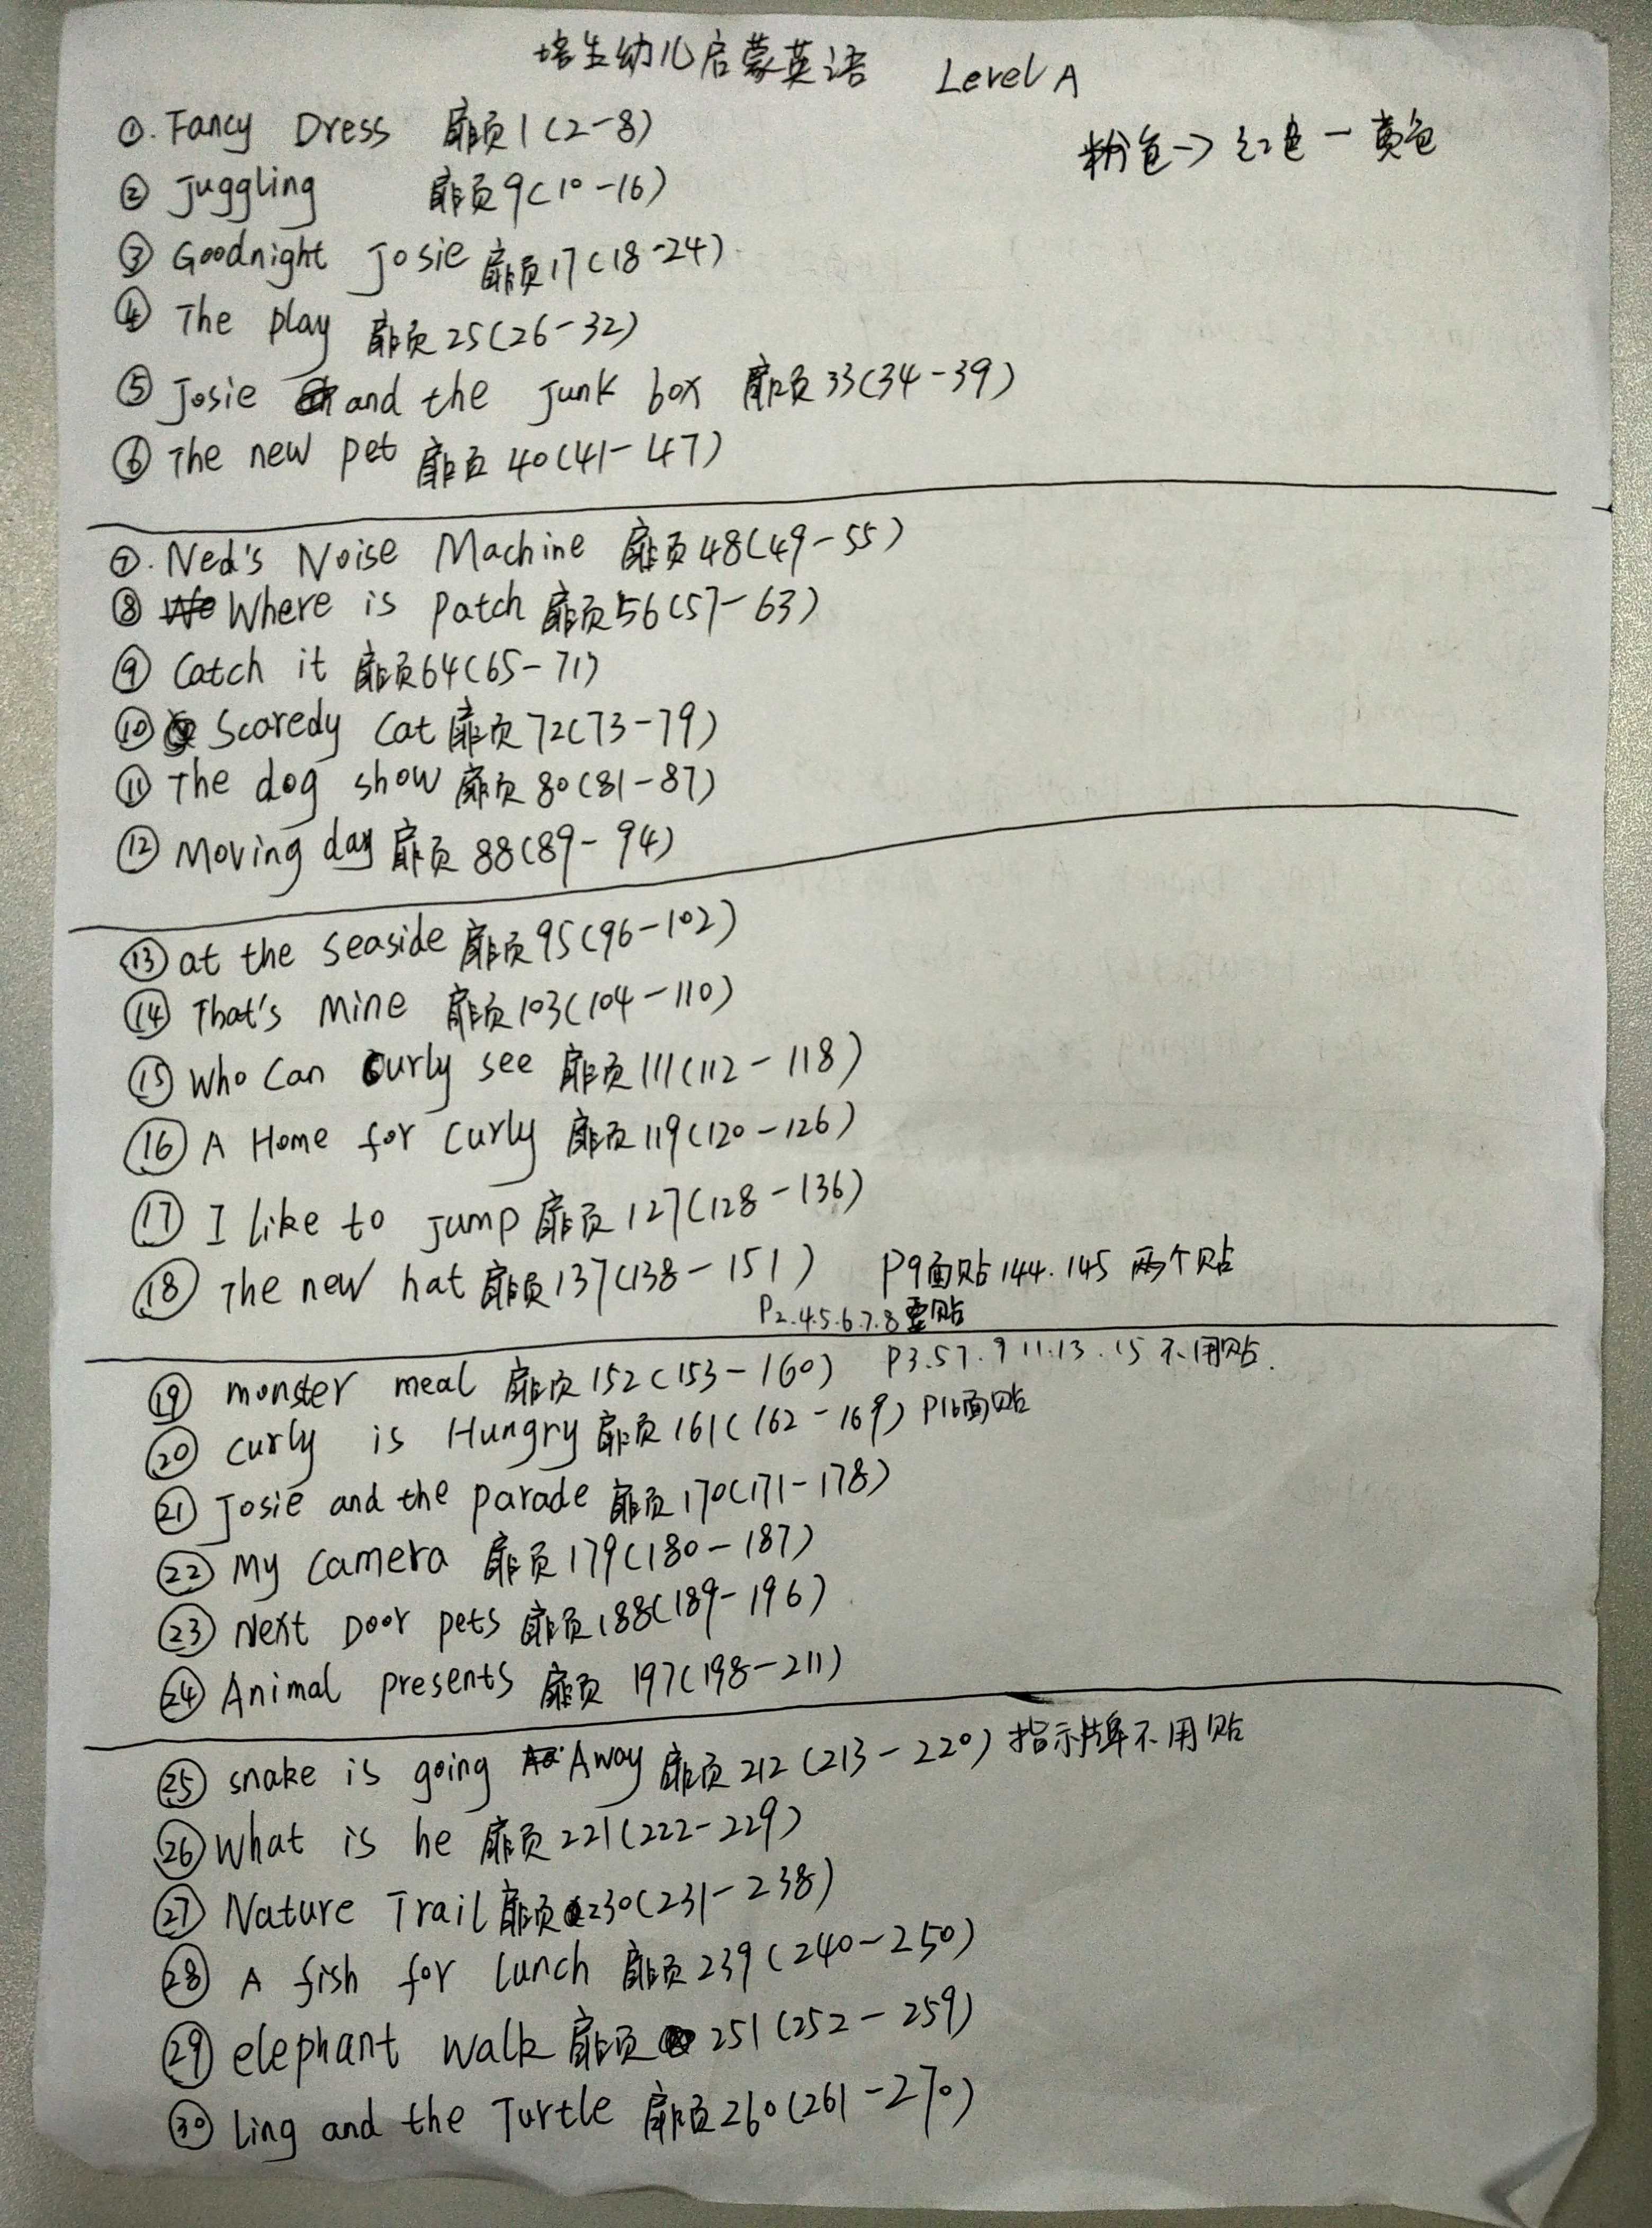 培生幼儿启蒙英语 Level A
粉色→红色-黄色
①. Fancy Dress 扉页1(2-8)
② Juggling 扉页9(10-16)
③ Goodnight Josie 扉页17(18-24)
④ The play 扉页25(26-32)
⑤ Josie and the Junk box 扉页33(34-39)
⑥ The new pet 扉页40(41-47)
⑦. Ned's Noise Machine 扉页48(49-55)
⑧ Where is patch 扉页56(57-63)
⑨ Catch it 扉页64(65-71)
⑩ Scaredy Cat 扉页72(73-79)
⑪ The dog show 扉页80(81-87)
⑫ Moving day 扉页88(89-94)
⑬ at the seaside 扉页95(96-102)
⑭ That's Mine 扉页103(104-110)
⑮ Who Can Curly see 扉页111(112-118)
⑯ A Home for Curly 扉页119(120-126)
⑰ I like to Jump 扉页127(128-136)
⑱ The new hat 扉页137(138-151) P9面贴144.145两个贴
P2.4.5.6.7.8要贴
⑲ monster meal 扉页152(153-160) P3.57.9 11.13.15不用贴.
⑳ curly is Hungry 扉页161(162-169) P16面贴
㉑ Josie and the parade 扉页170(171-178)
㉒ My Camera 扉页179(180-187)
㉓ Next Door pets 扉页188(189-196)
㉔ Animal presents 扉页197(198-211)
㉕ snake is going Away 扉页212(213-220) 指示牌不用贴
㉖ What is he 扉页221(222-229)
㉗ Nature Trail 扉页230(231-238)
㉘ A fish for lunch 扉页239(240-250)
㉙ elephant walk 扉页251(252-259)
㉚ Ling and the Turtle 扉页260(261-270)